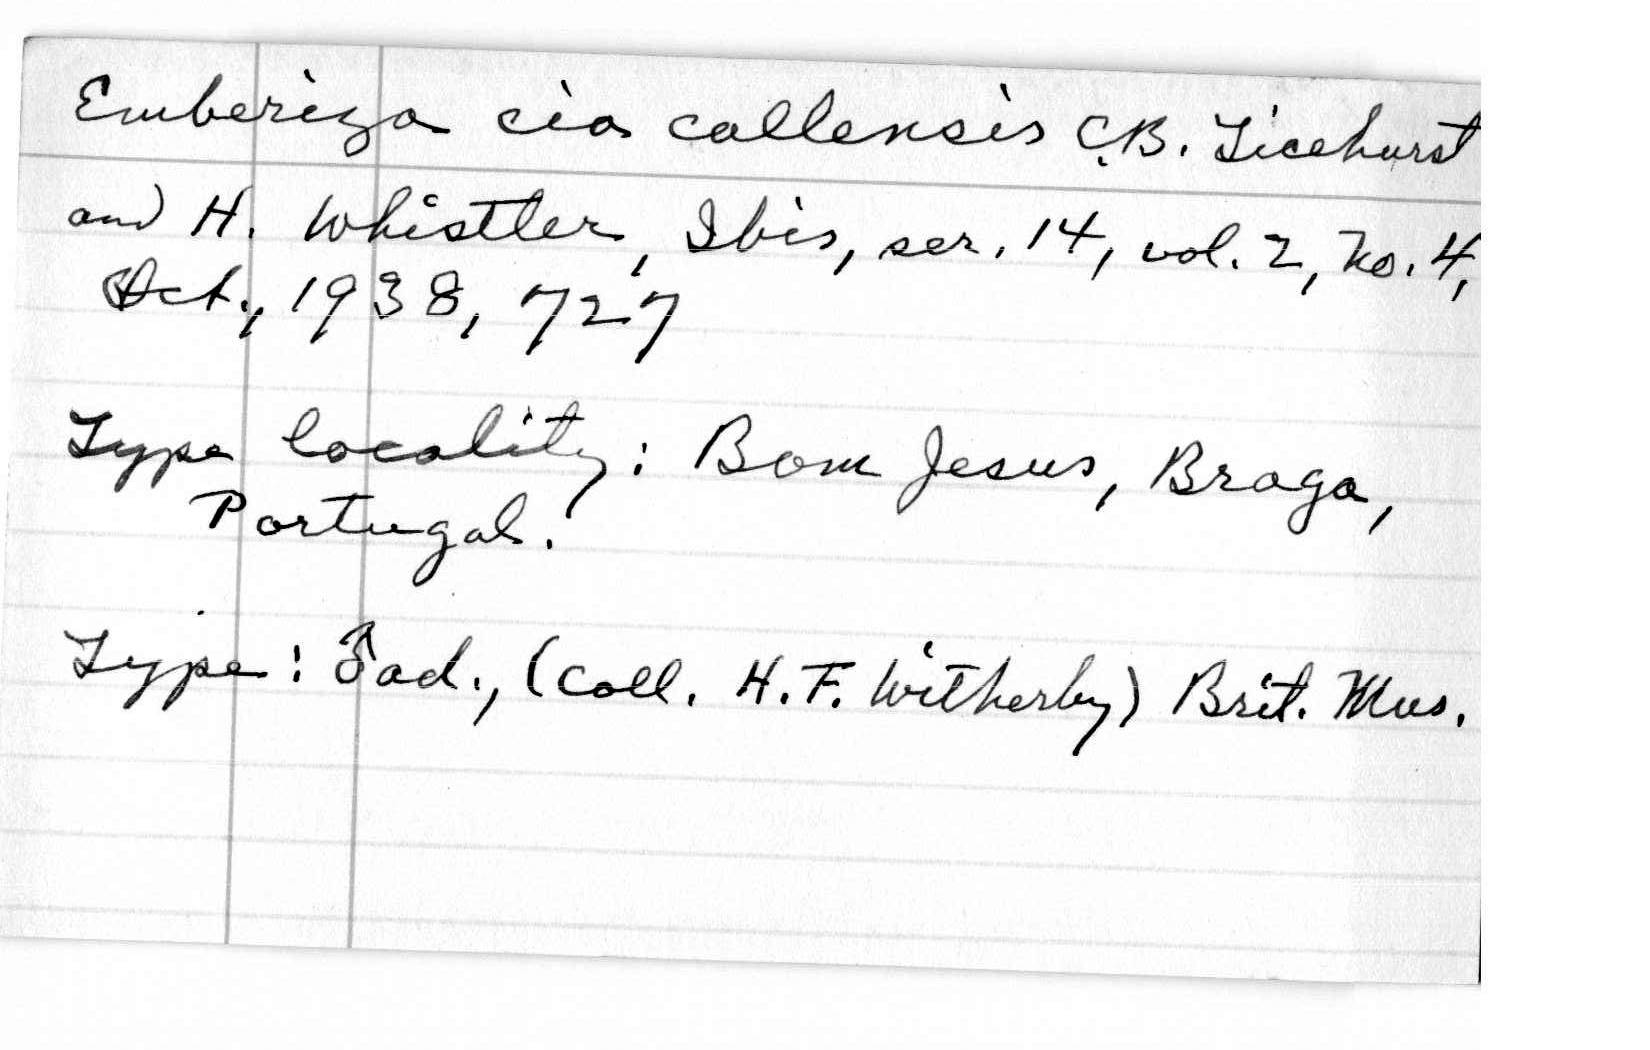 Emberiza cia callensis C.B. Ticehurst
and H. Whistler, Ibis, ser. 14, vol. 2, no. 4,
Oct., 1938, 727
Type locality: Bom Jesus, Braga,
Portugal.
Type: ♂ ad., (coll. H.F. Witherby) Brit. Mus.